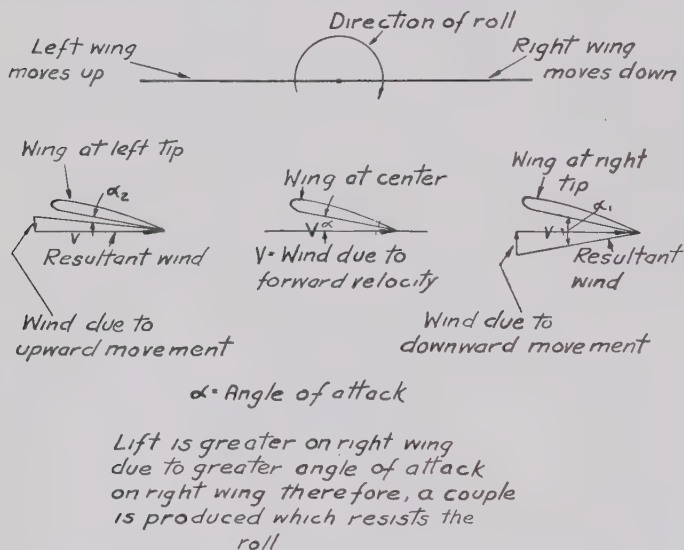 Direction of roll
Left wing
moves up
Right wing
moves down
Wing at left tip
α2
V
Resultant wind
Wind due to
upward movement
Wing at center
V α
V = Wind due to
forward velocity
Wing at right
tip
α1
V
Resultant
wind
Wind due to
downward movement
α = Angle of attack
Lift is greater on right wing
due to greater angle of attack
on right wing therefore, a couple
is produced which resists the
roll